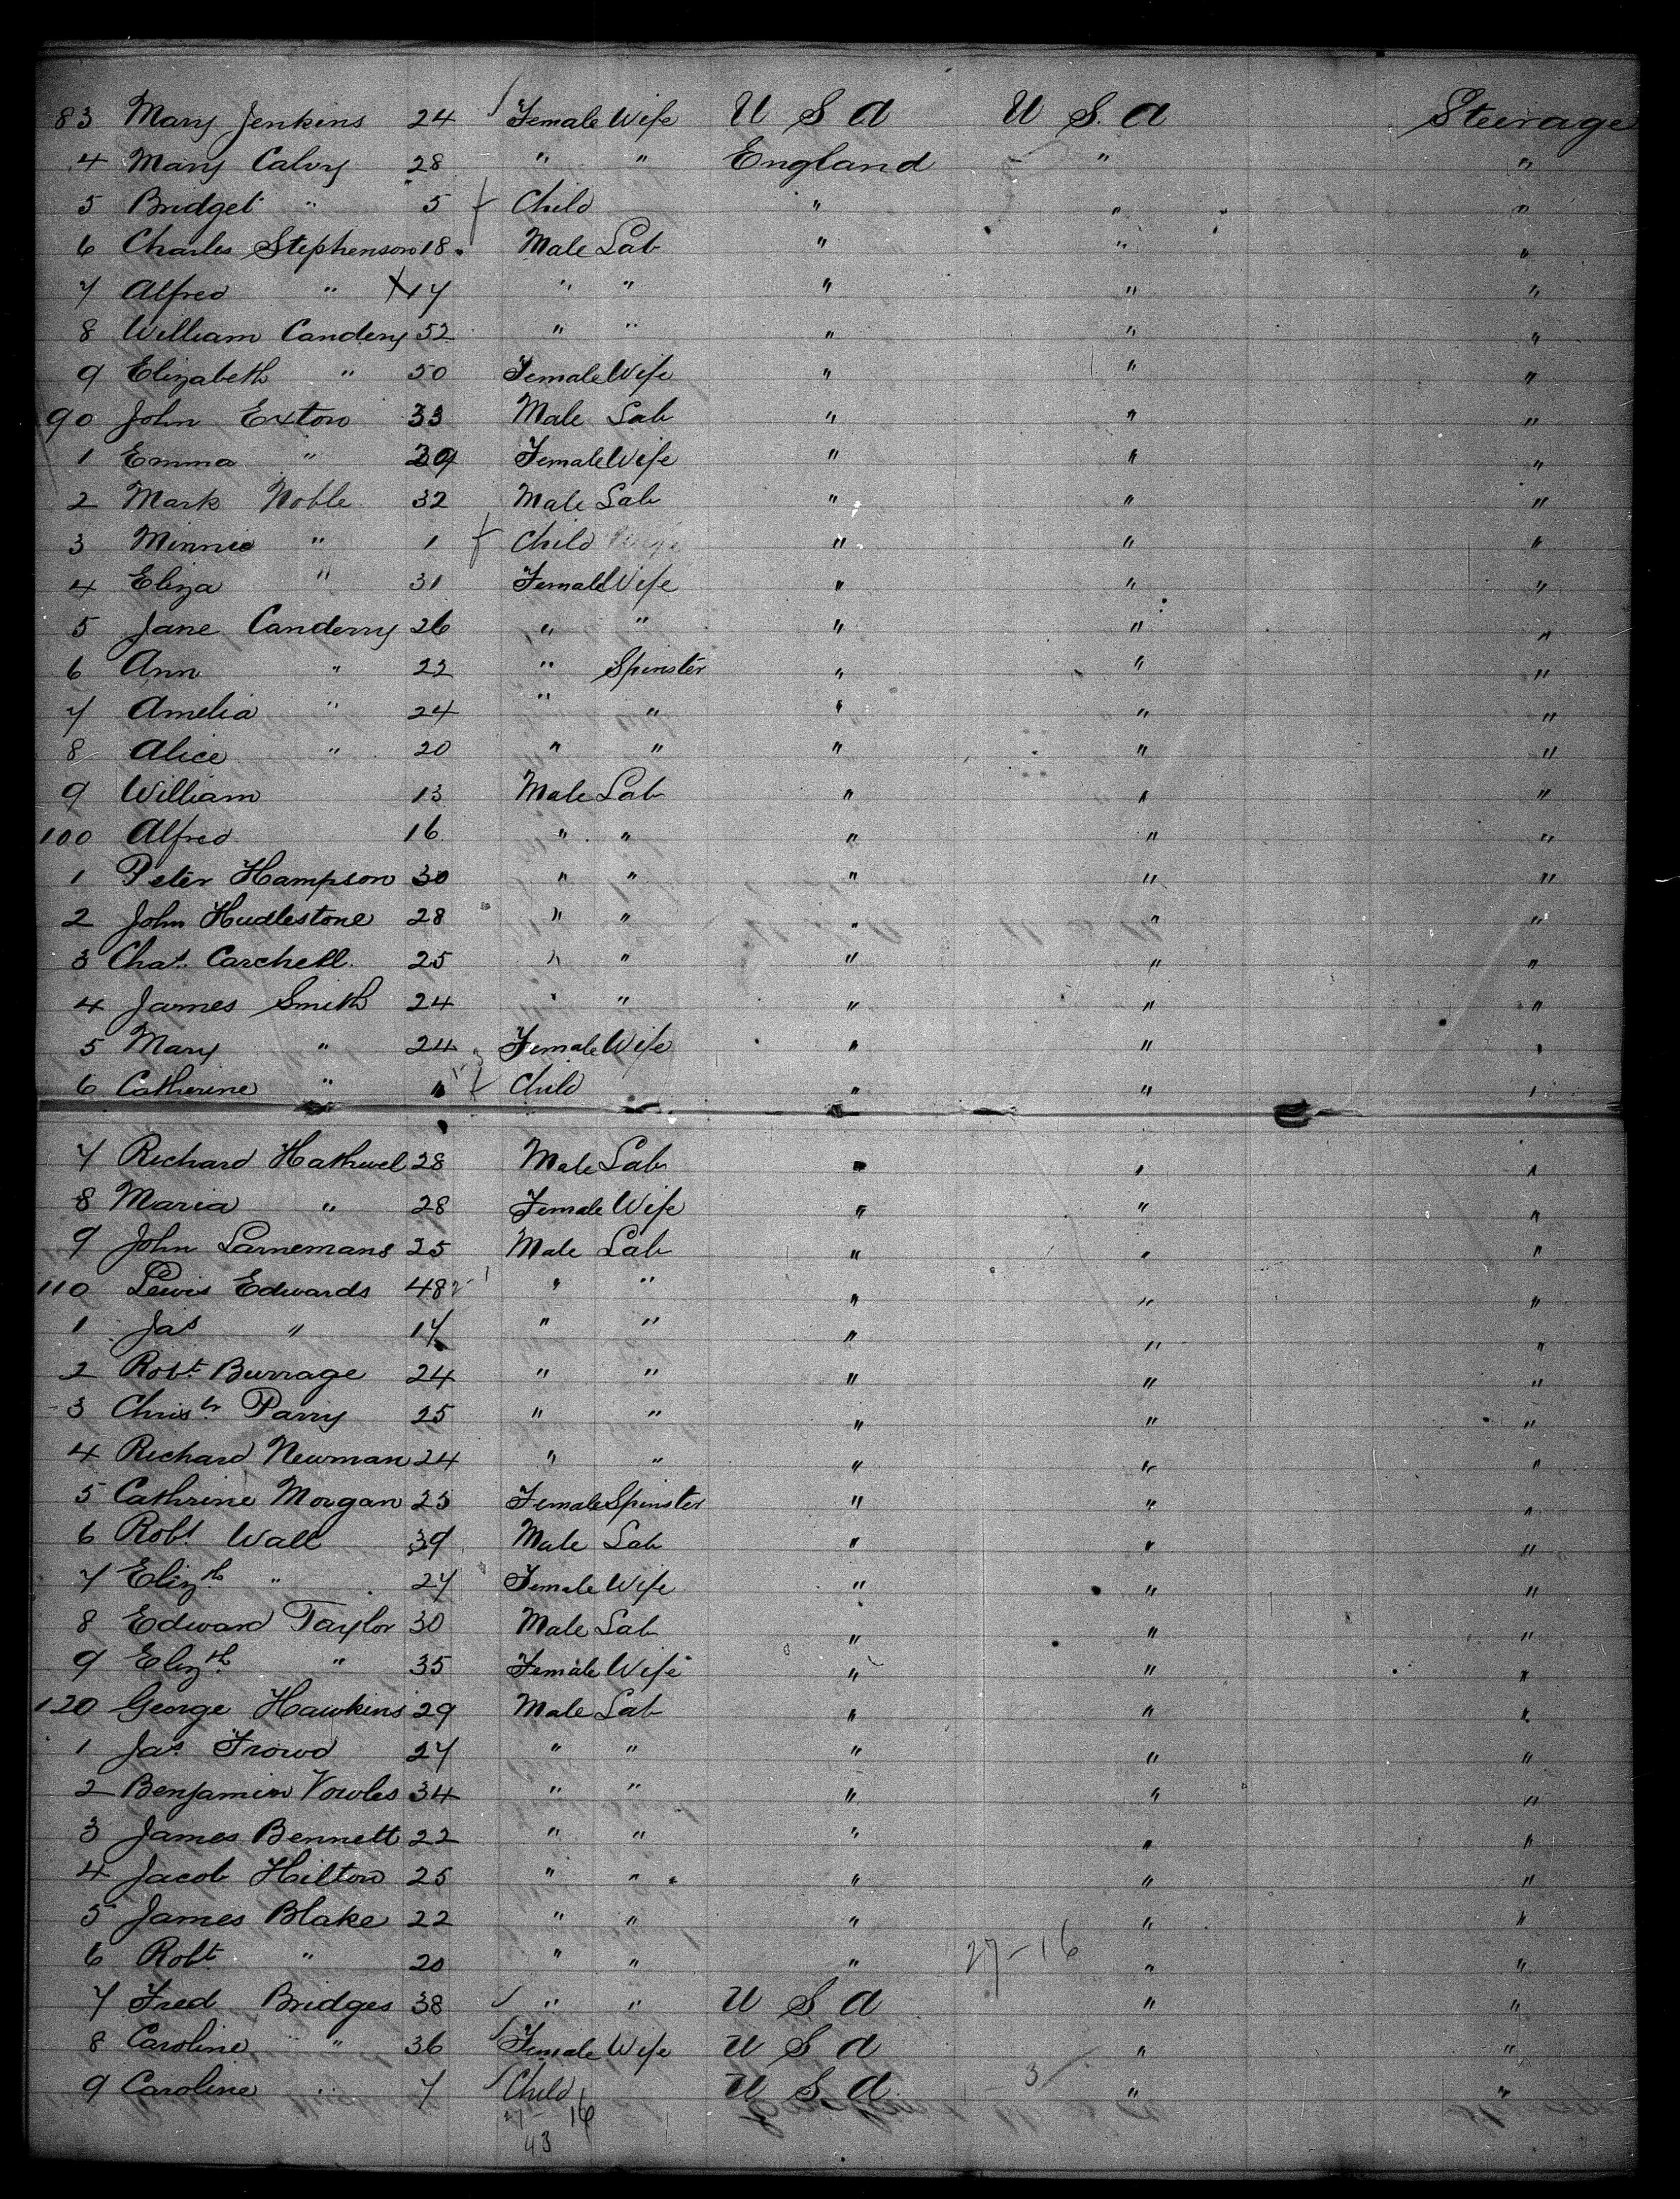 83 Mary Jenkins 24 Female Wife U S A U S. A Steerage
4 Mary Calvy 28 " " England " "
5 Bridget " 5 Child " " "
6 Charles Stephenson 18 Male Lab " " "
7 Alfred " 17 " " " " "
8 William Candery 52 " " " " "
9 Elizabeth " 50 Female Wife " " "
90 John Exton 33 Male Lab " " "
1 Emma " 29 Female Wife " " "
2 Mark Noble 32 Male Lab " " "
3 Minnie " 1 Child " " "
4 Eliza " 31 Female Wife " " "
5 Jane Canderry 26 " " " " "
6 Ann " 22 " Spinster " " "
7 Amelia " 24 " " " " "
8 Alice " 20 " " " " "
9 William 13 Male Lab " " "
100 Alfred 16 " " " " "
1 Peter Hampson 30 " " " " "
2 John Hudlestone 28 " " " " "
3 Chas. Carchell 25 " " " " "
4 James Smith 24 " " " " "
5 Mary " 24 Female Wife " " "
6 Catherine " Child " " "
7 Richard Hathwel 28 Male Lab " " "
8 Maria " 28 Female Wife " " "
9 John Larnemans 25 Male Lab " " "
110 Lewis Edwards 48 " " " " "
1 Jas " 17 " " " " "
2 Robt Burrage 24 " " " " "
3 Christr Parry 25 " " " " "
4 Richard Newman 24 " " " " "
5 Cathrine Morgan 25 Female Spinster " " "
6 Robt Wall 39 Male Lab " " "
7 Elizth " 27 Female Wife " " "
8 Edward Taylor 30 Male Lab " " "
9 Elizth " 35 Female Wife " " "
120 George Hawkins 29 Male Lab " " "
1 Jas Frowd 27 " " " " "
2 Benjamin Vowles 34 " " " " "
3 James Bennett 22 " " " " "
4 Jacob Hilton 25 " " " " "
5 James Blake 22 " " " " "
6 Robt " 20 " " " 27-16 " "
7 Fred Bridges 38 " " U S A " "
8 Caroline " 36 Female Wife U S A " "
9 Caroline " 7 Child U S A 3 " "
16
43